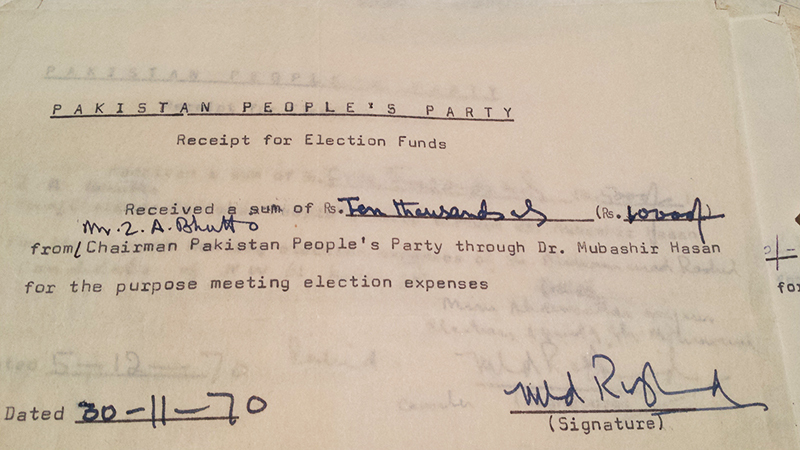 PAKISTAN PEOPLE'S PARTY
Receipt for Election Funds
Received a sum of Rs. Ten thousands (Rs. 10000/-)
Mr. Z. A. Bhutto
from/Chairman Pakistan People's Party through Dr. Mubashir Hasan
for the purpose meeting election expenses
Dated 30-11-70
(Signature)
for